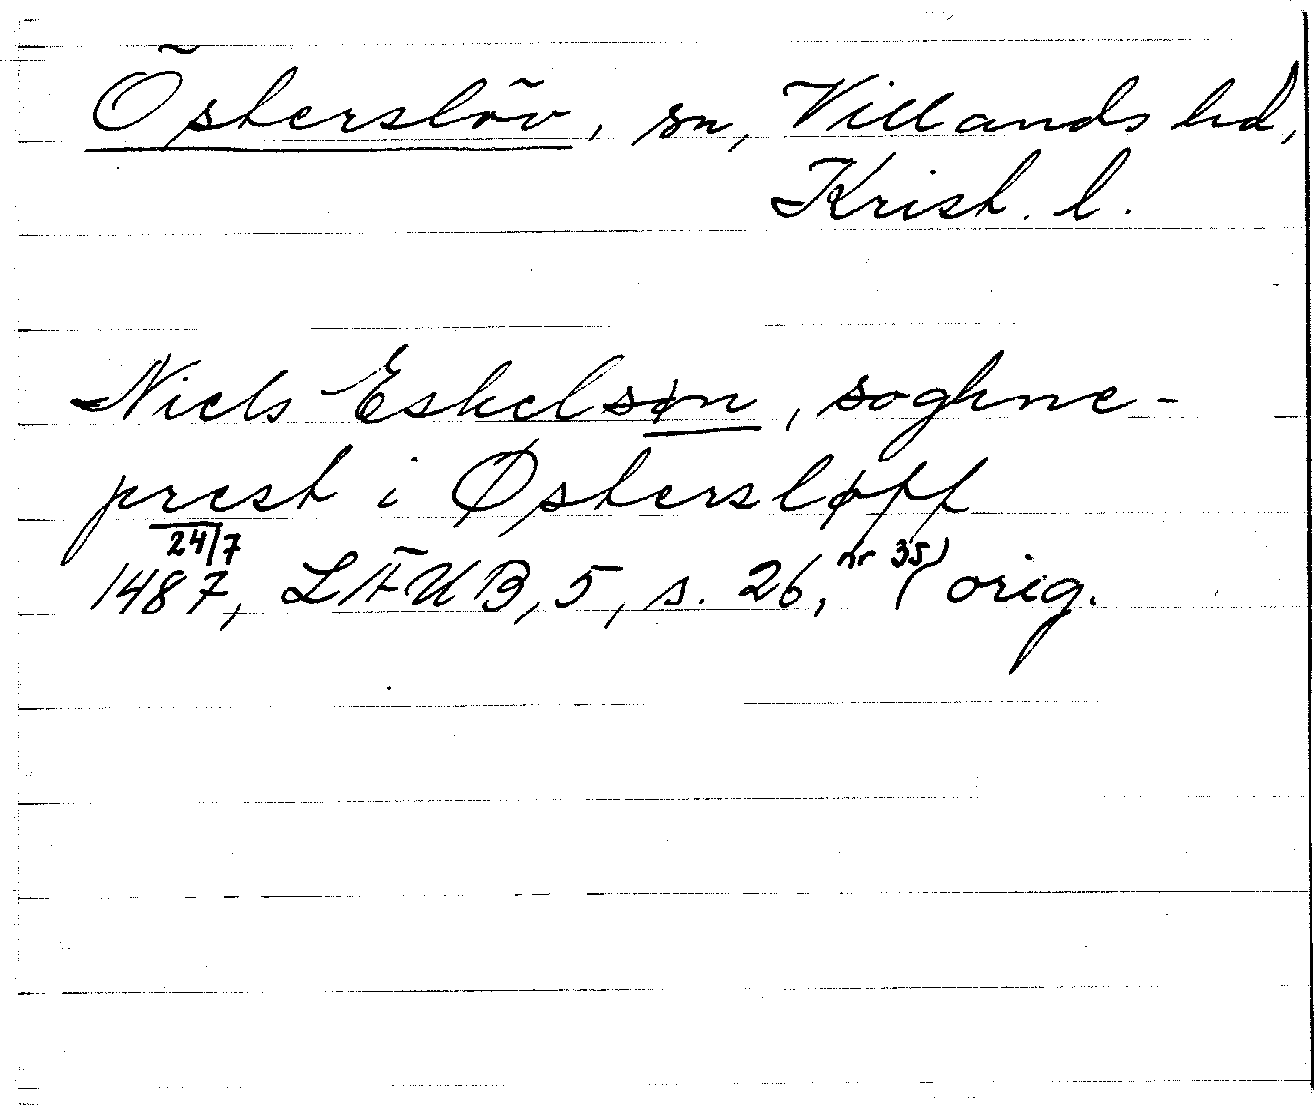 Östersłöv, sn, Villands hd,
Krist. l.
Niels Eskelsøn, soghne-
prest i Østersløff
24/7
1487, LÄUB, 5, s. 26, nr 35) orig.